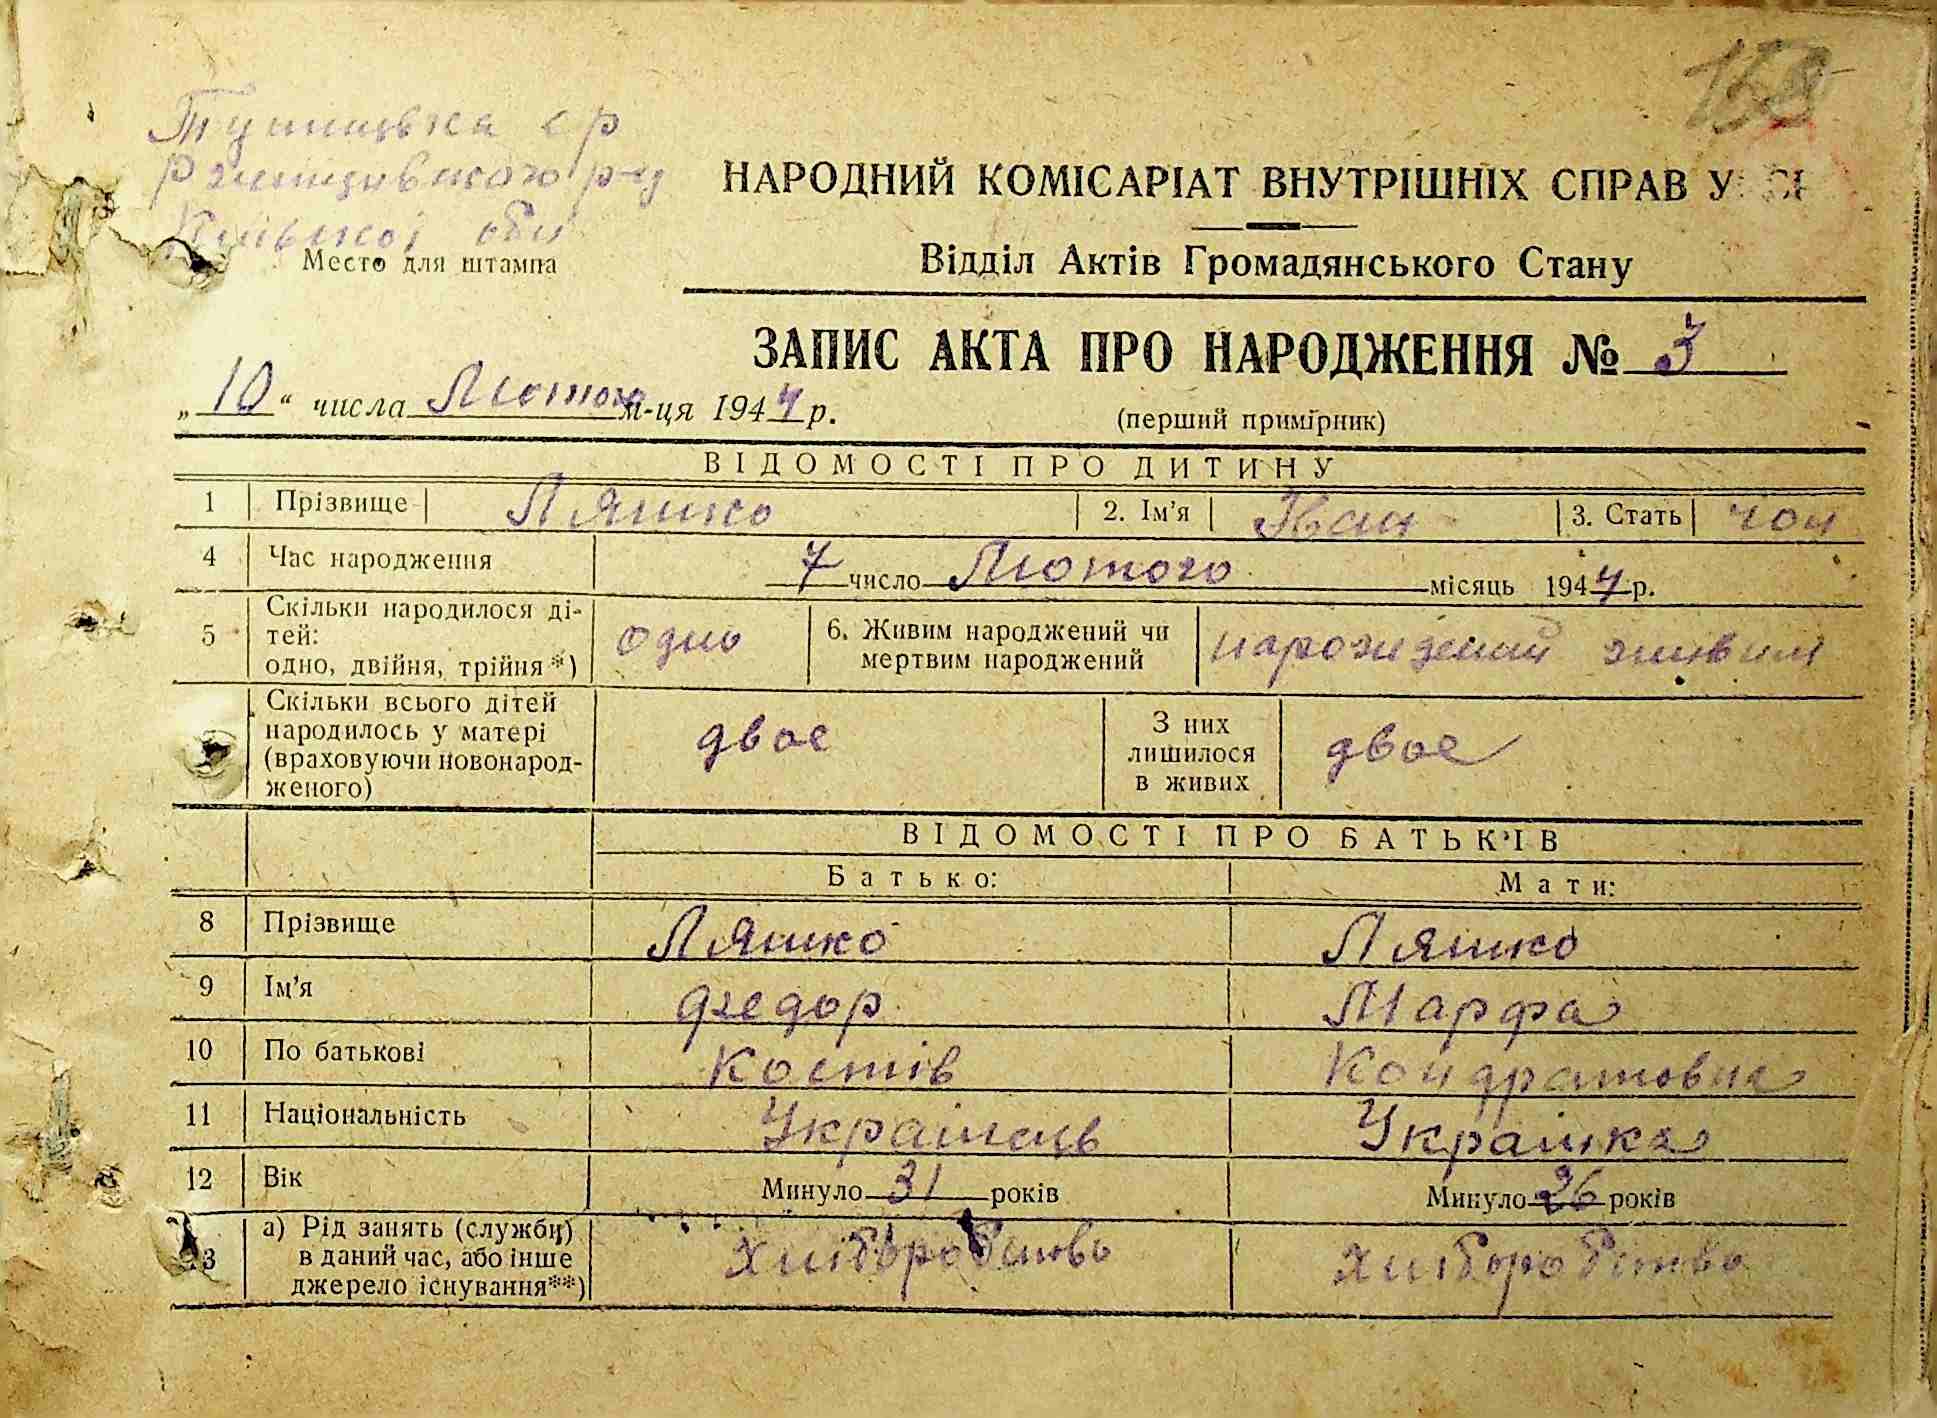 158
Тупицька с р
Ржищівського р-ну
Київської обл
Место для штампа
НАРОДНИЙ КОМІСАРІАТ ВНУТРІШНІХ СПРАВ У
Відділ Актів Громадянського Стану
ЗАПИС АКТА ПРО НАРОДЖЕННЯ № 3
„10“ числа Лютого м-ця 1944 р.
(перший примірник)
ВІДОМОСТІ ПРО ДИТИНУ
1 Прізвище Ляшко 2. Ім'я Іван 3. Стать чол
4 Час народження 7 число Лютого місяць 1944 р.
5 Скільки народилося ді-
тей:
одно, двійня, трійня*) одно 6. Живим народжений чи
мертвим народжений нарождений живим
Скільки всього дітей
народилось у матері
(враховуючи новонарод-
женого) двое З них
лишилося
в живих двое
ВІДОМОСТІ ПРО БАТЬКІВ
Батько: Мати:
8 Прізвище Ляшко Ляшко
9 Ім'я Федор Марфа
10 По батькові Костів Кондратовна
11 Національність Українець Українка
12 Вік Минуло 31 років Минуло 26 років
13 а) Рід занять (служби)
в даний час, або інше
джерело існування**) Хліборобство Хліборобство